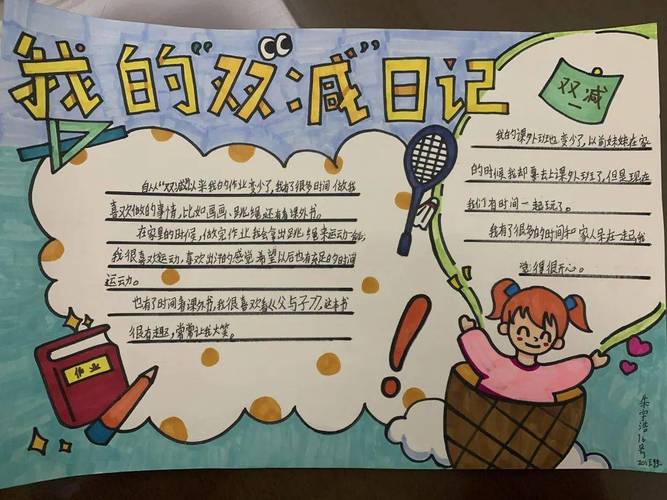 我的“双”减”日记
双减
自从“双减”以来我的作业变少了,我有了很多时间做我
喜欢做的事情,比如画画、跳绳还有看课外书。
在家里的时候,做完作业我会拿出跳绳来运动一会,
我很喜欢运动,喜欢出汗的感觉,希望以后也有充足的时间
运动。
也有了时间看课外书,我很喜欢看《父与子》,这本书
很有趣,常常让我大笑。
我的课外班也变少了,以前妹妹在家
的时候我却要去上课外班了,但是现在
我们有时间一起玩了。
我有了很多的时间和家人呆在一起,我
觉得很开心。
作业
16号